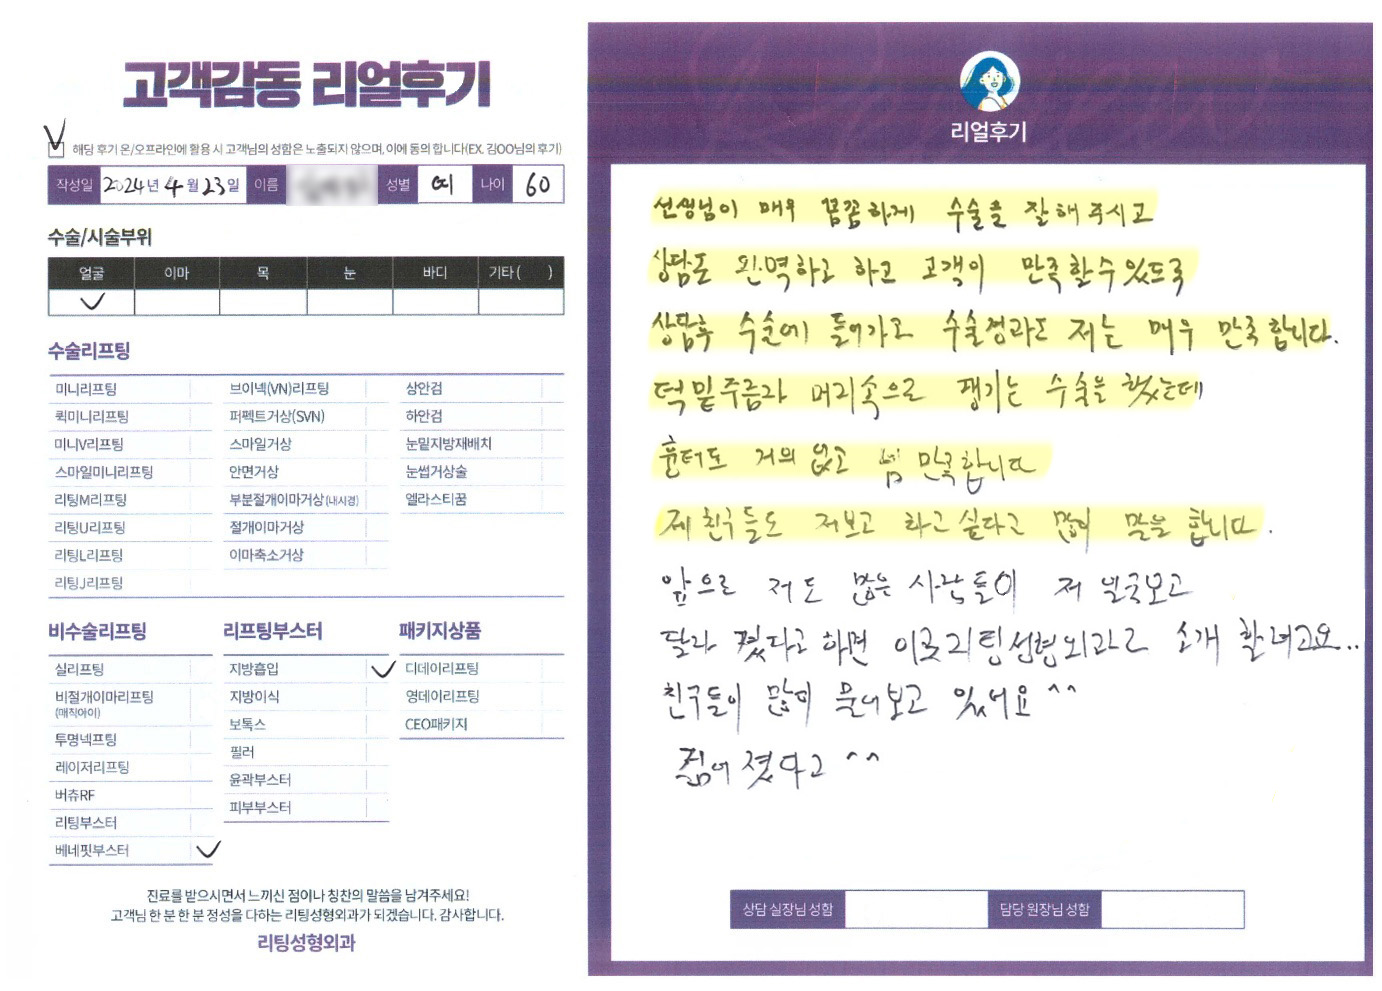 고객감동 리얼후기
해당 후기 온/오프라인에 활용 시 고객님의 성함은 노출되지 않으며, 이에 동의 합니다(EX. 김OO님의 후기)
작성일 2024년 4월 23일 이름 성별 여 나이 60
수술/시술부위
얼굴 이마 목 눈 바디 기타 ( )
수술리프팅
미니리프팅 브이넥(VN)리프팅 상안검
퀵미니리프팅 퍼펙트거상(SVN) 하안검
미니V리프팅 스마일거상 눈밑지방재배치
스마일미니리프팅 안면거상 눈썹거상술
리팅M리프팅 부분절개이마거상(내시경) 엘라스티꿈
리팅U리프팅 절개이마거상
리팅L리프팅 이마축소거상
리팅J리프팅
비수술리프팅 리프팅부스터 패키지상품
실리프팅 지방흡입 디데이리프팅
비절개이마리프팅 지방이식 영데이리프팅
(매직아이)
투명넥프팅 보톡스 CEO패키지
레이저리프팅 필러
버츄RF 윤곽부스터
리팅부스터 피부부스터
베네핏부스터
진료를 받으시면서 느끼신 점이나 칭찬의 말씀을 남겨주세요!
고객님 한 분 한 분 정성을 다하는 리팅성형외과가 되겠습니다. 감사합니다.
리팅성형외과
리얼후기
선생님이 매우 꼼꼼하게 수술을 잘해주시고
상담도 완벽하고 하고 고객이 만족할수있도록
상담후 수술에 들어가고 수술결과도 저는 매우 만족합니다.
턱밑주름과 머리속으로 땡기는 수술을 했는데
흉터도 거의 없고 넘 만족합니다
제친구들도 저보고 하고싶다고 많이 말을 합니다.
앞으로 저도 많은 사람들이 저 얼굴보고
달라 졌다고 하면 이곳리팅성형외과로 소개 할려고요..
친구들이 많이 물어보고 있어요 ^^
젊어 졌다고 ^^
상담 실장님 성함 담당 원장님 성함